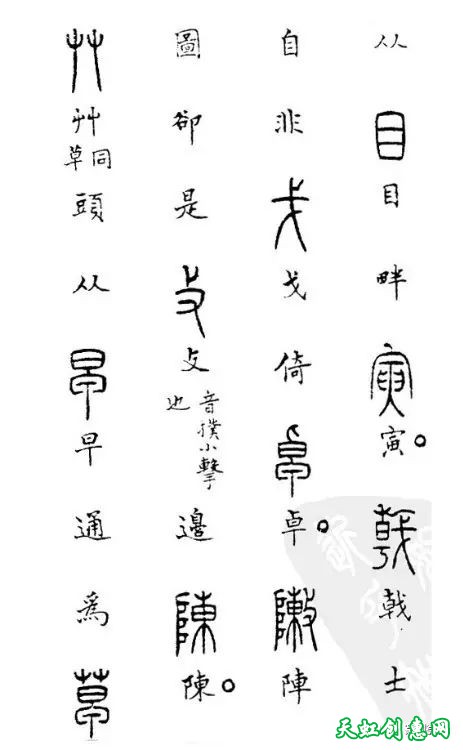 从目目畔寅寅。戟戟士
自非戈戈倚卓卓。陣陣
圖卻是攴攴音撲小擊也邊陳陳。
艸艸草同頭从早早通爲草
天虹创意网